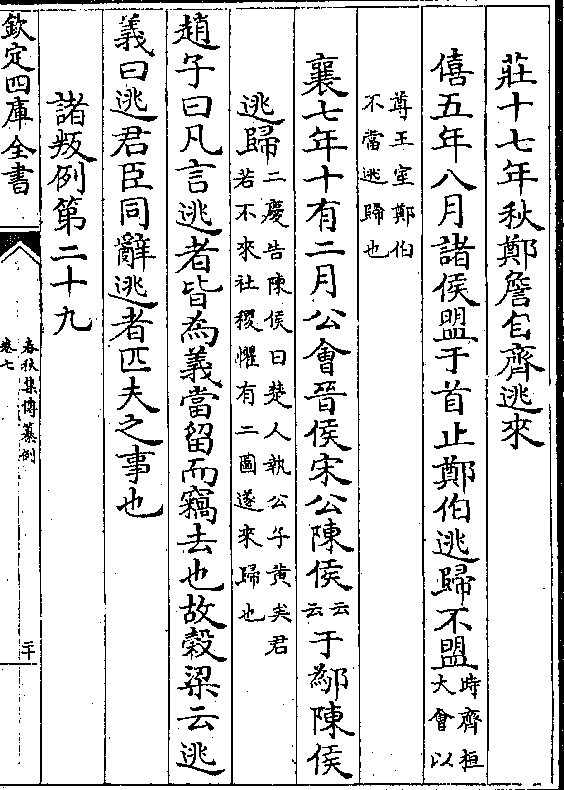 莊十七年秋鄭詹自齊逃來
僖五年八月諸侯盟于首止鄭伯逃歸不盟時齊桓大會以
尊王室鄭伯不當逃歸也
襄七年十有二月公會晉侯宋公陳侯云云于鄬陳侯
逃歸二慶告陳侯曰楚人執公子黃矣君若不來社稷懼有二圖遂來歸也
趙子曰凡言逃者皆為義當留而竊去也故穀梁云逃
義曰逃君臣同辭逃者匹夫之事也
諸叛例第二十九
欽定四庫全書
春秋集傳纂例
卷七
二十